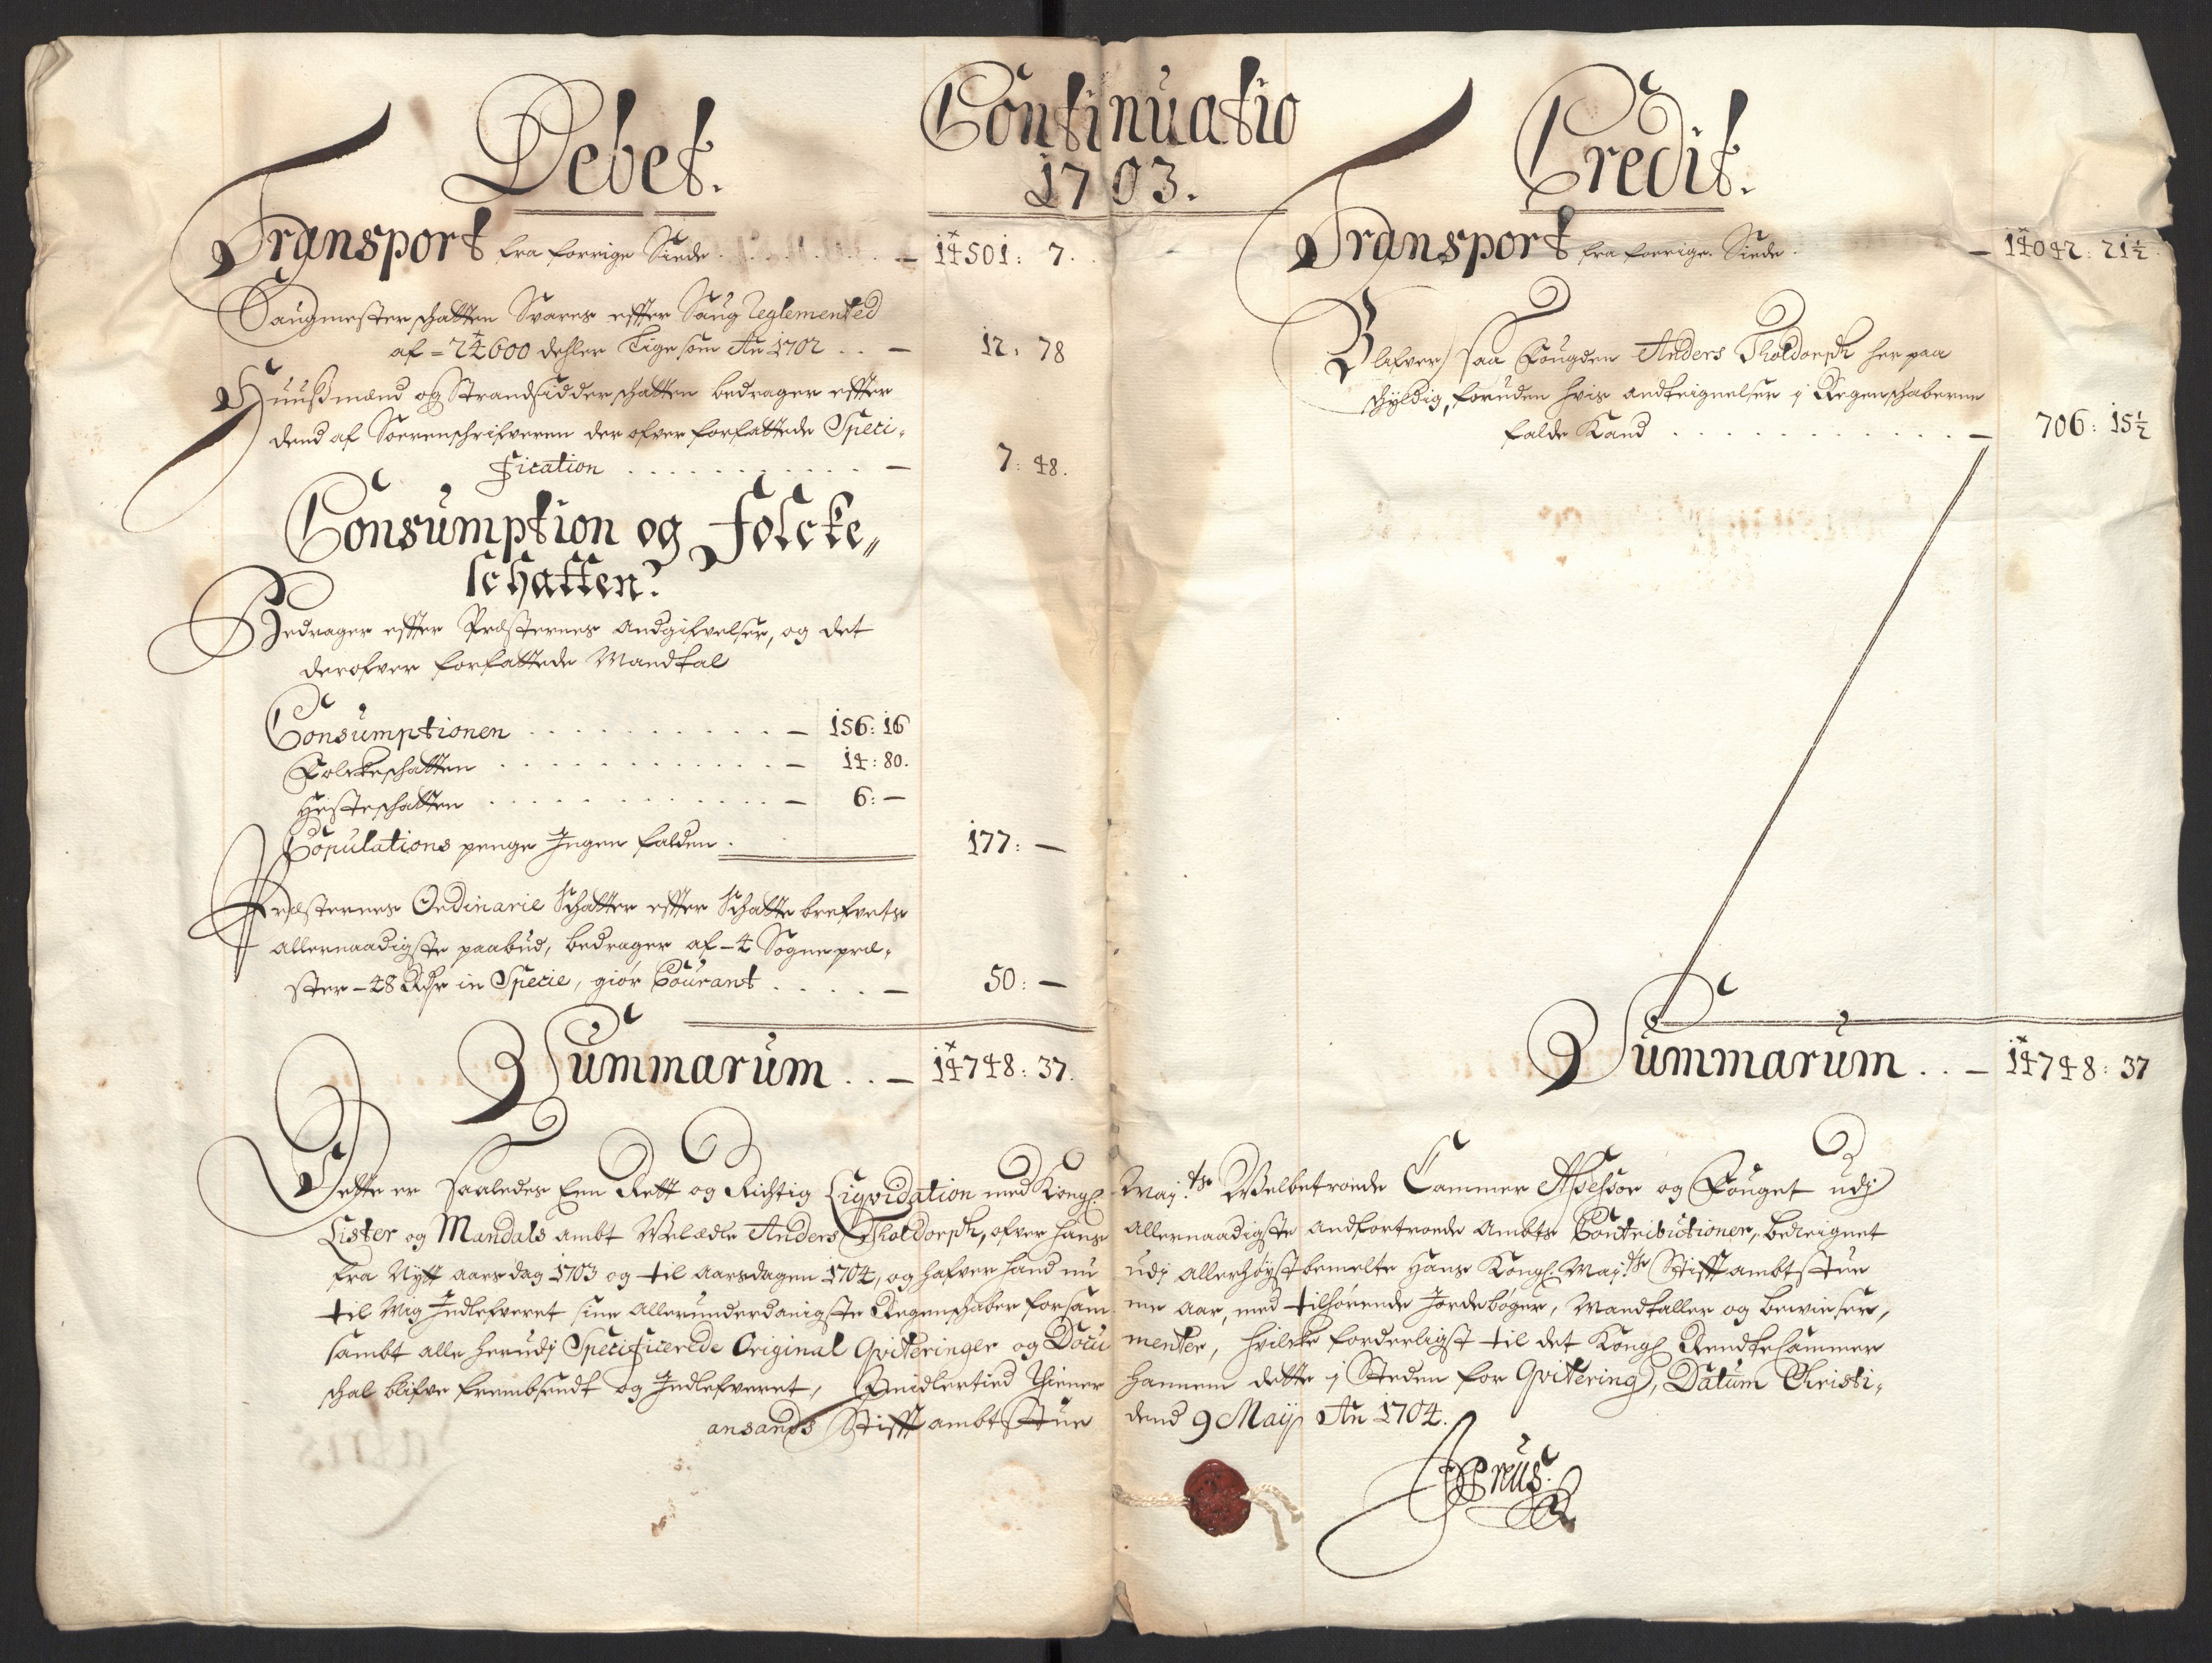 Continuatio
1703.
Debet.
Transport fra forrige Siide . . . . . . . . . — 14501: 7.
Saugmesterschatten Svares effter Saug Reglemented
af = 24600 dehler Lige som Ao 1702 . . — 12: 78
Huußmænd og Strandsidder schatten bedrager effter
dend af Sorenschrifveren der ofver forfattede Speci-
fication . . . . . . . . . . — 7: 48.
Consumption og Folcke„
schatten.
Bedrager effter Præsternes Andgifvelser, og det
derofver forfattede Mandtal
Consumptionen . . . . . . . . . — 156: 16
Folckeschatten . . . . . . . . . . — 14: 80.
Hesteschatten . . . . . . . . . . — 6: —
Copulations penge Ingen falden . 177: —
Præsternes Ordinarie Schatter effter Schatte brefvets
allernaadigste paabud, bedrager af — 4 Sognepræ-
ster — 48 Rdr in Specie, giør Courant . . . . — 50: —
Summarum . . — 14748: 37.
Credit.
Transport fra forrige Siide . — 14042: 21½
Blifver saa Fougden Anders Tholdorph her paa
schyldig, foruden hvis andteignelser j Regenschaberne
falde Kand . . . . . . . . . . . . — 706: 15½
Summarum . . — 14748: 37
Dette er saaledes Een Rett og Richtig Liqvidation med Kongl. Maij.ts Velbetroede Cammer Assessor og Fouget udj
Lister og Mandals ambt Velædle Anders Tholdorph, ofver hans allernaadigste andfortroede Ambts Contributioner, beregnet
fra Nytt aars dag 1703 og til Aarsdagen 1704, og hafver hand nu udj allerhøystbemelte Hans Kongl. Maij.ts Stifftambtstue
til Mig Indlefveret sine Allerunderdanigste Regenschaber for samme Aar, med tilhørende Jordebøger, Mandtaller og beviiser,
sambt alle herudj Specificerede Original Qviteringer og Documenter, hvilcke forderligst til det Kongl. Rendtekammer
schal blifve frembsendt og Indlefveret, Imidlertid thiener hannem dette j Steden for Qvitering, Datum Christi-
ansands Stifftambtstue dend 9 Maij Ao 1704.